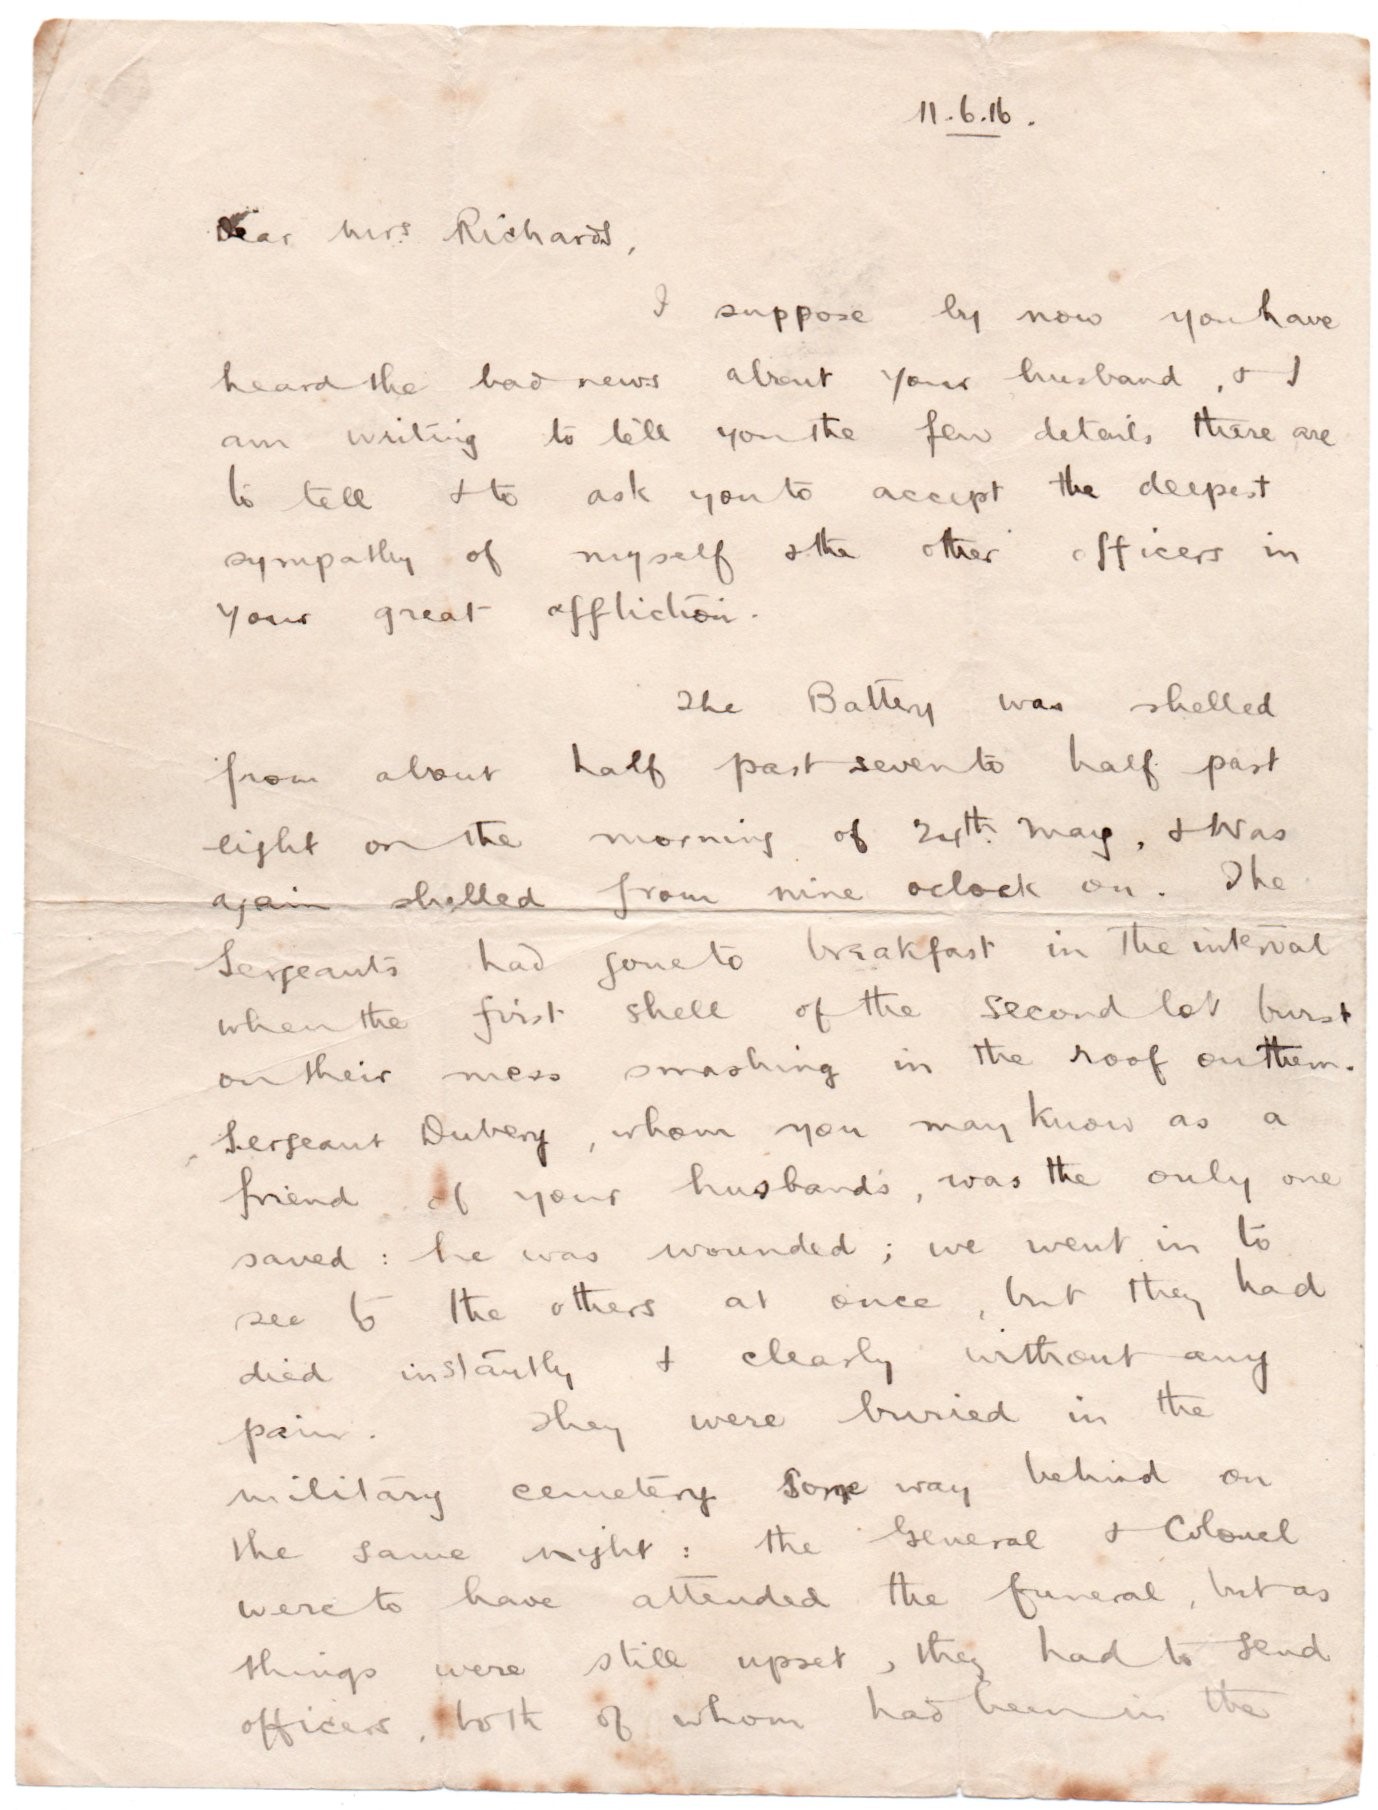 11.6.16.
Dear Mrs Richards,
I suppose by now you have
heard the bad news about your husband, & I
am writing to tell you the few details there are
to tell & to ask you to accept the deepest
sympathy of myself & the other officers in
your great affliction.
The Battery was shelled
from about half past seven to half past
eight on the morning of 24th May, & was
again shelled from nine oclock on. The
Sergeants had gone to breakfast in the interval
when the first shell of the second lot burst
on their mess smashing in the roof on them.
Sergeant Dubery, whom you may know as a
friend of your husband's, was the only one
saved: he was wounded; we went in to
see to the others at once, but they had
died instantly & clearly without any
pain. They were buried in the
military cemetery some way behind on
the same night: the General & Colonel
were to have attended the funeral, but as
things were still upset, they had to send
officers, both of whom had been in the